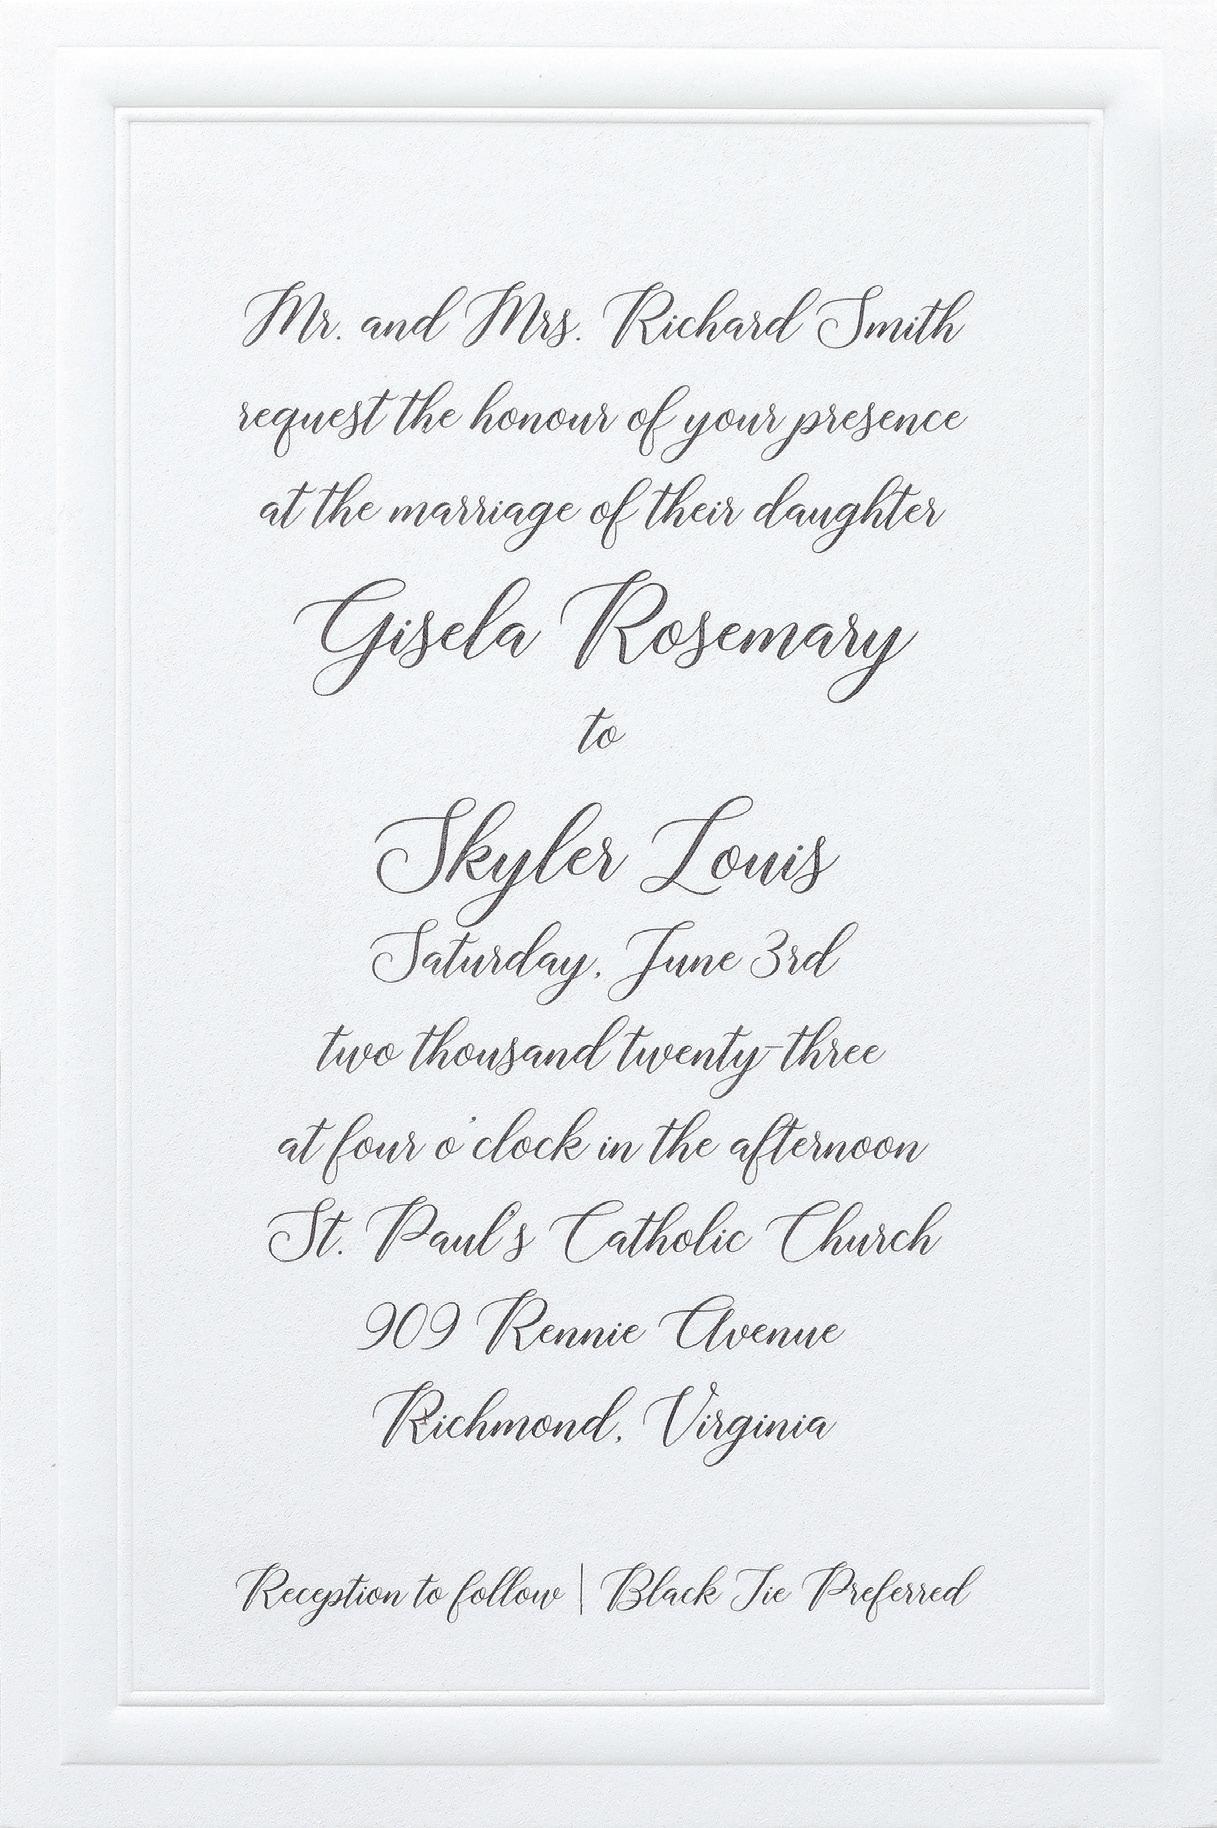 Mr. and Mrs. Richard Smith
request the honour of your presence
at the marriage of their daughter
Gisela Rosemary
to
Skyler Louis
Saturday, June 3rd
two thousand twenty-three
at four o'clock in the afternoon
St. Paul's Catholic Church
909 Rennie Avenue
Richmond, Virginia
Reception to follow | Black Tie Preferred